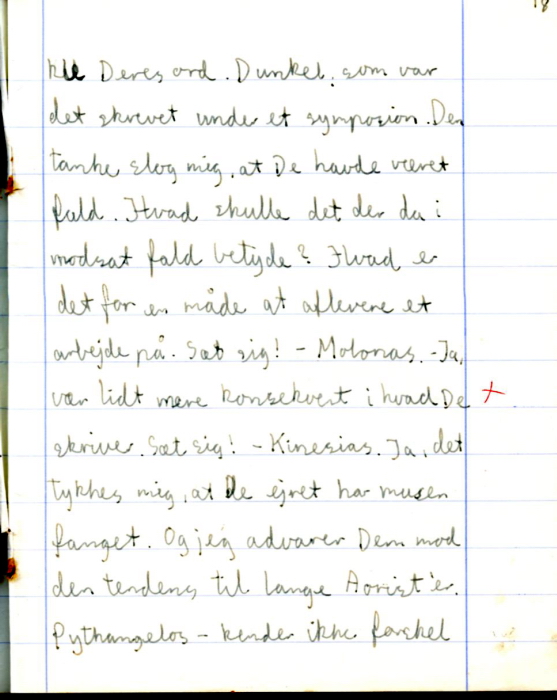 18
kle Deres ord. Dunkel, som var
det skrevet unde et symposion. Den
tanke slog mig, at De havde været
fuld. Hvad skulle det der da i
modsat fald betyde? Hvad er
det for en måde at aflevere et
arbejde på. Sæt sig! - Molonas. - Ja,
vær lidt mere konsekvent i hvad De
skriver. Sæt sig! - Kinesias. Ja, det
tykkes mig, at De ejret har musen
fanget. Og jeg advarer Dem mod
den tendens til lange Aorist'er.
Pythangelos - kender ikke forskel